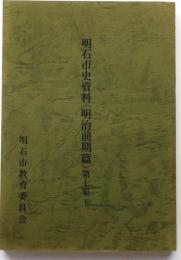 明石市史資料(明治前期篇)第七集
明石市教育委員会